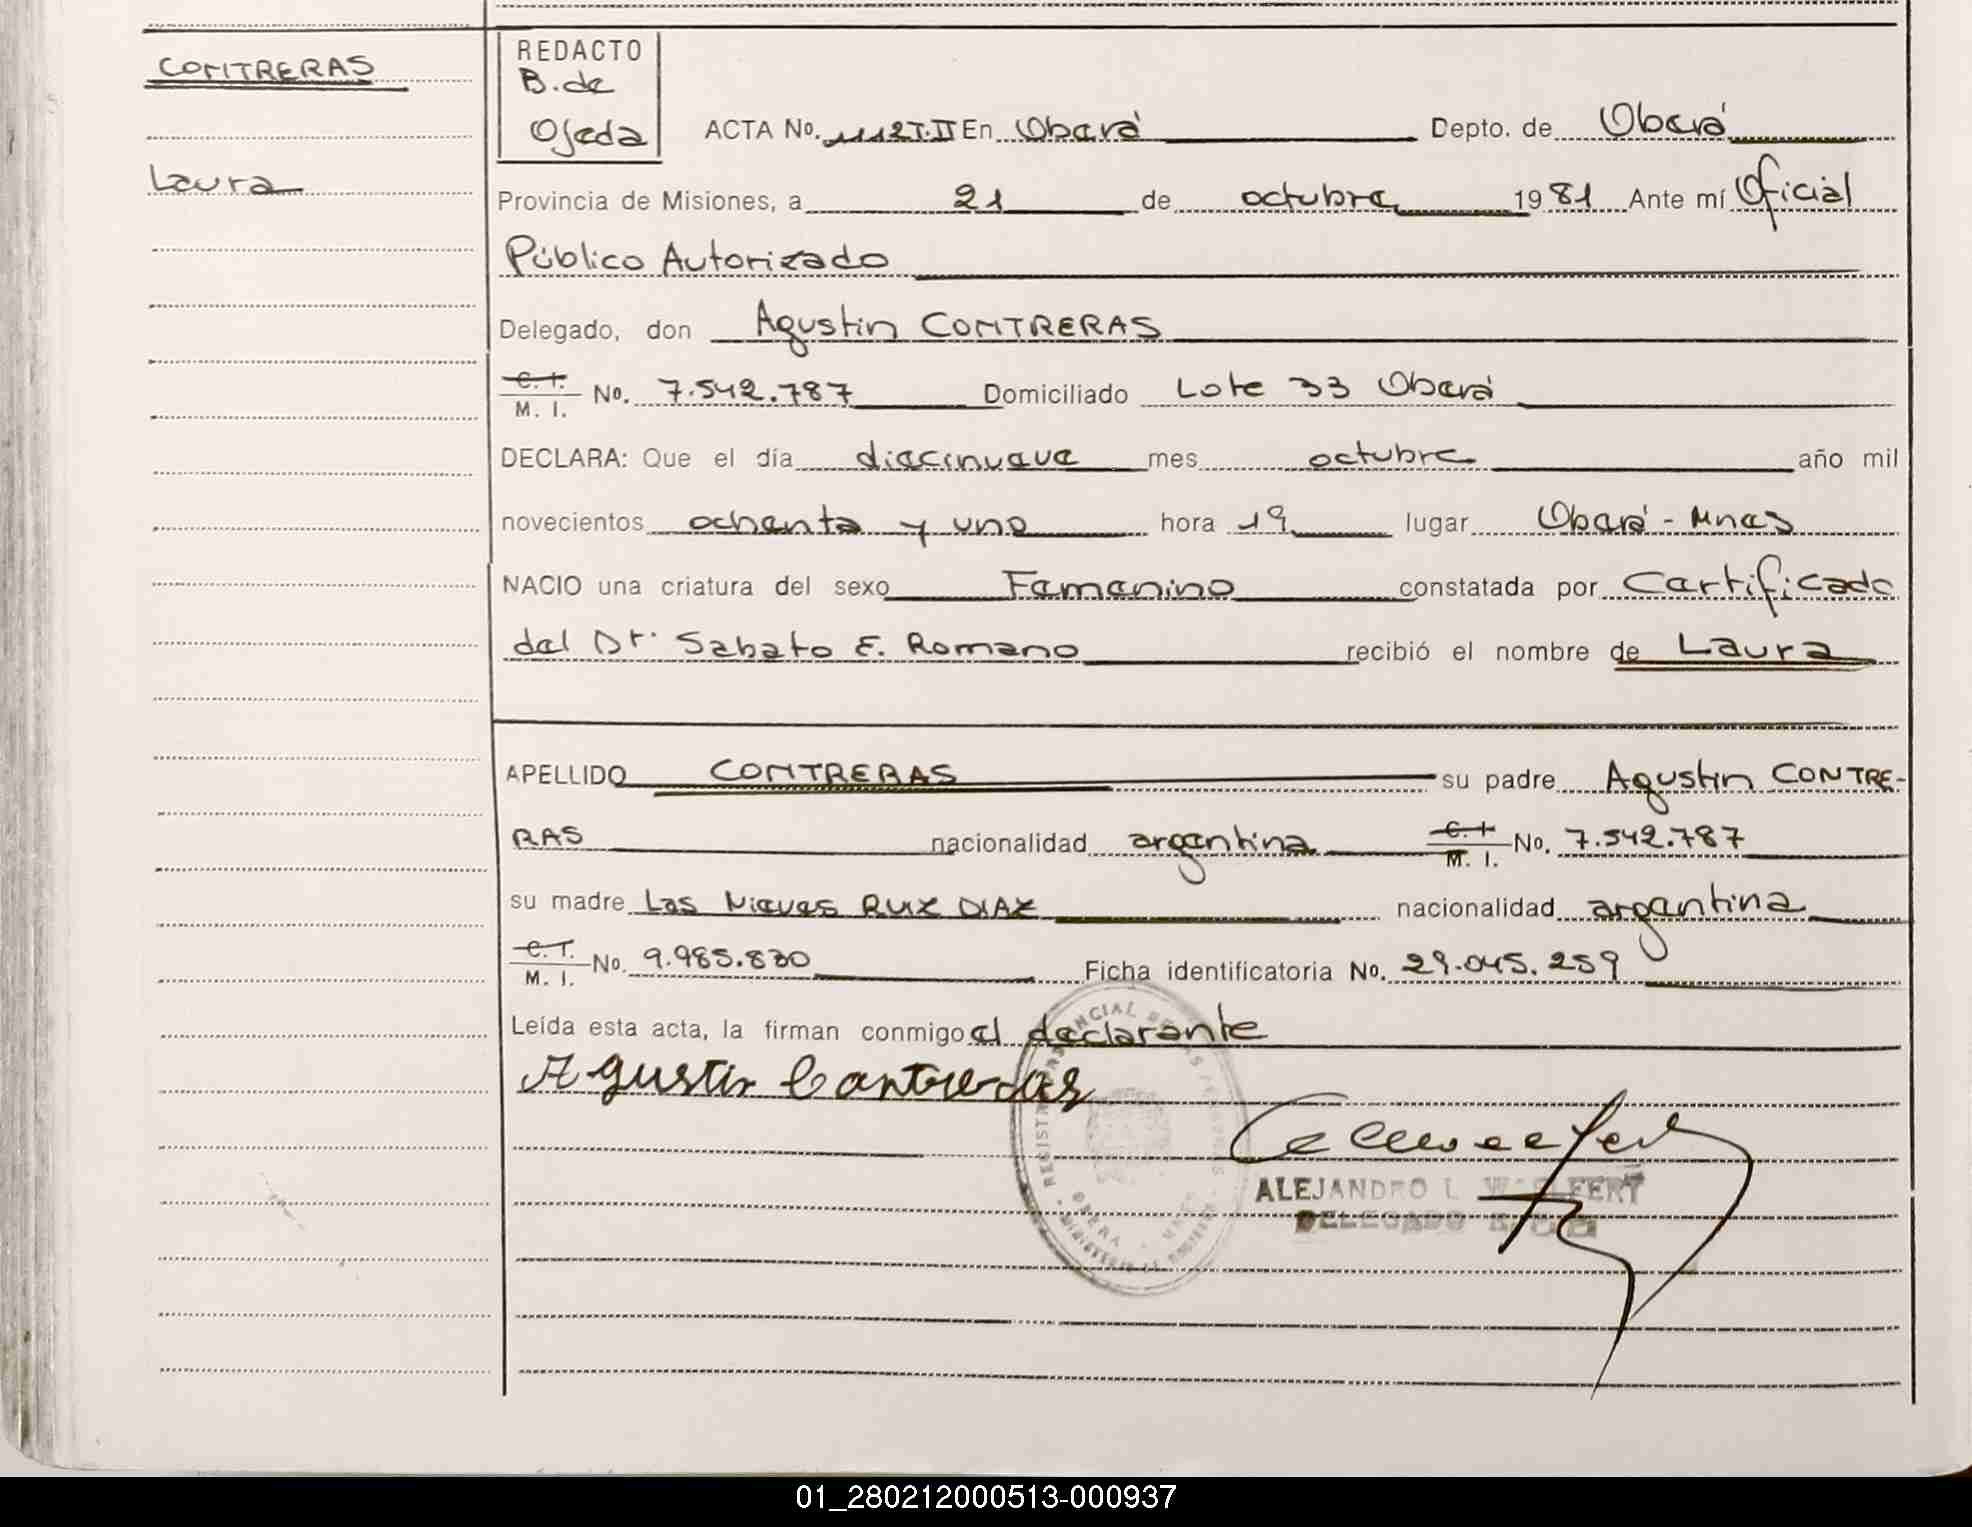 CONTRERAS
Laura
REDACTO
B. de
Ojeda
ACTA No. 1112T.II En Oberá Depto. de Oberá
Provincia de Misiones, a 21 de octubre 1981 Ante mí Oficial
Público Autorizado
Delegado, don Agustin CONTRERAS
C. I. M. I. No. 7.542.787 Domiciliado Lote 33 Oberá
DECLARA: Que el día diecinueve mes octubre año mil
novecientos ochenta y uno hora 19 lugar Oberá - Mnes
NACIO una criatura del sexo Femenino constatada por Certificado
del Dr. Sabato E. Romano recibió el nombre de Laura
APELLIDO CONTRERAS su padre Agustin CONTRE-
RAS nacionalidad argentina C. I. M. I. No. 7.542.787
su madre Las Nieves RUIZ DIAZ nacionalidad argentina
C. I. M. I. No. 9.985.830 Ficha identificatoria No. 29.045.259
Leída esta acta, la firman conmigo el declarante
Agustin Contreras
ALEJANDRO L. WOLFERT
DELEGADO
01_280212000513-000937